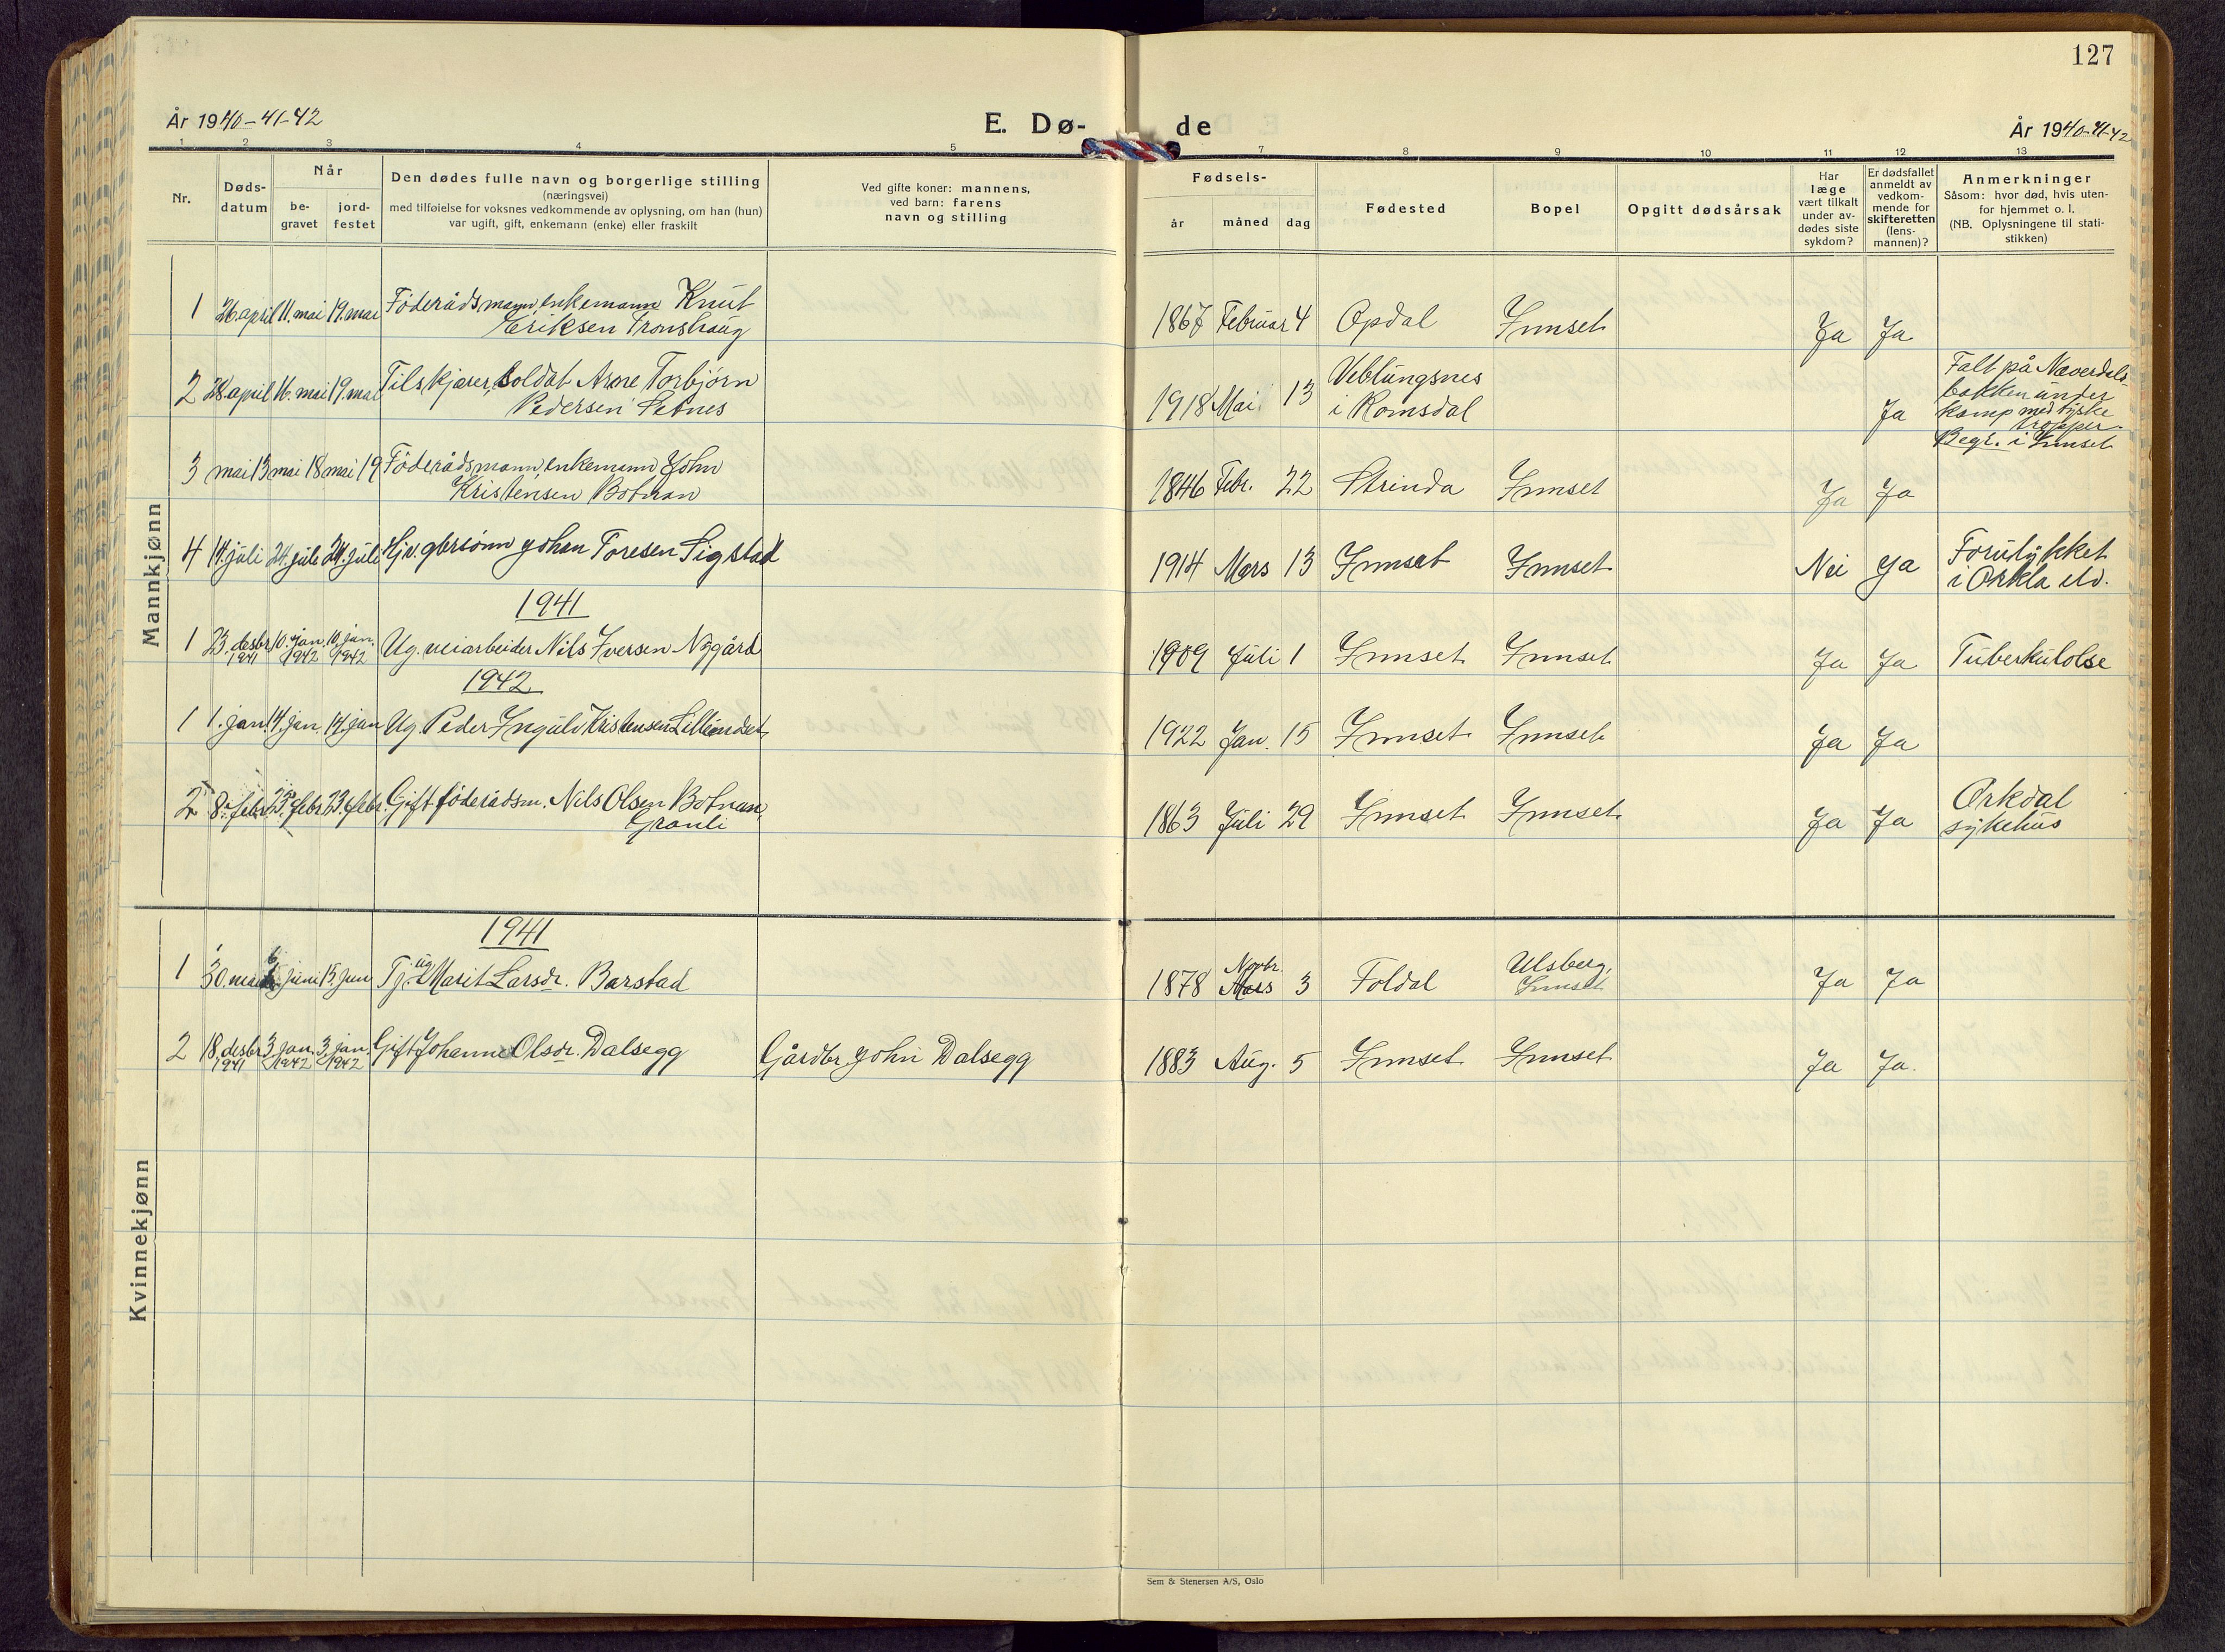 127
År 1940-41-42
E. Dø-
de
År 1940-41-42
1 2 3 4 5 7 8 9 10 11 12 13
Nr.
Døds-
datum
Når
be-
gravet
jord-
festet
Den dødes fulle navn og borgerlige stilling
(næringsvei)
med tilføielse for voksnes vedkommende av oplysning, om han (hun)
var ugift, gift, enkemann (enke) eller fraskilt
Ved gifte koner: mannens,
ved barn: farens
navn og stilling
Fødsels-
år måned dag
Fødested
Bopel
Opgitt dødsårsak
Har
læge
vært tilkalt
under av-
dødes siste
sykdom?
Er dødsfallet
anmeldt av
vedkom-
mende for
skifteretten
(lens-
mannen)?
Anmerkninger
Såsom: hvor død, hvis uten-
for hjemmet o. l.
(NB. Oplysningene til stati-
stikken)
Mannkjønn
1 26. april 11. mai 19. mai Föderådsmann, enkemann Knut
Eriksen Tronshaug
1867 Februar 4 Opdal Innset Ja Ja
2 28. april 16. mai 19. mai Tilskjærer, soldat Arne Torbjörn
Pedersen Setnes
1918 Mai 13 Veblungsnes
i Romsdal
Ja
Falt på Næverdals-
bakken under
kamp med tyske
tropper.
Begr. i Innset
3 mai 13 mai 18 mai 19 Föderådsmann, enkemann John
Kristensen Botnan
1846 Febr. 22 Strinda Innset Ja Ja
4 14. juli 24. juli 24. juli Gjv. gbrsönn Johan Toresen Sigstad
1914 Mars 13 Innset Innset Nei Ja Forulykket
i Orkla elv.
1941
1 23. desbr. 1941 10. jan. 1942 10. jan. 1942 Ug. veiarbeider Nils Iversen Nygård
1909 Juli 1 Innset Innset Ja Ja Tuberkulolse
1942
1 1. jan. 14. jan. 14. jan Ug. Peder Ingulv Kristensen
1922 Jan. 15 Innset Innset Ja Ja
2 8. febr. 23. febr. 23. febr. Gift föderådsm. Nils Olsen Botnan,
Granli
1863 Juli 29 Innset Innset Ja Ja Orkdal
sykehus
Kvinnekjønn
1941
1 30. mai 6 juni 15. jun Tj. ug. Marit Larsdr. Barstad
1878 Novbr. Mars 3 Foldal Ulsberg,
Innset
Ja Ja
2 18. desbr. 1941 3. jan. 1942 3. jan. 1942 Gift Johanne Olsdr. Dalsegg Gårdbr. John Dalsegg
1883 Aug. 5 Innset Innset Ja Ja.
Sem & Stenersen A/S, Oslo